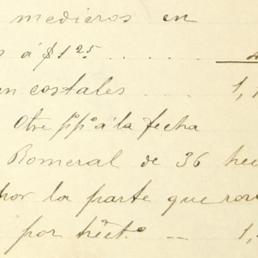 medieros en
s á $1.25 .....
en costales .... 1,
Otro pp.º á la fecha
Romeral de 36 hec
por la parte que
por hect.º -- 1,